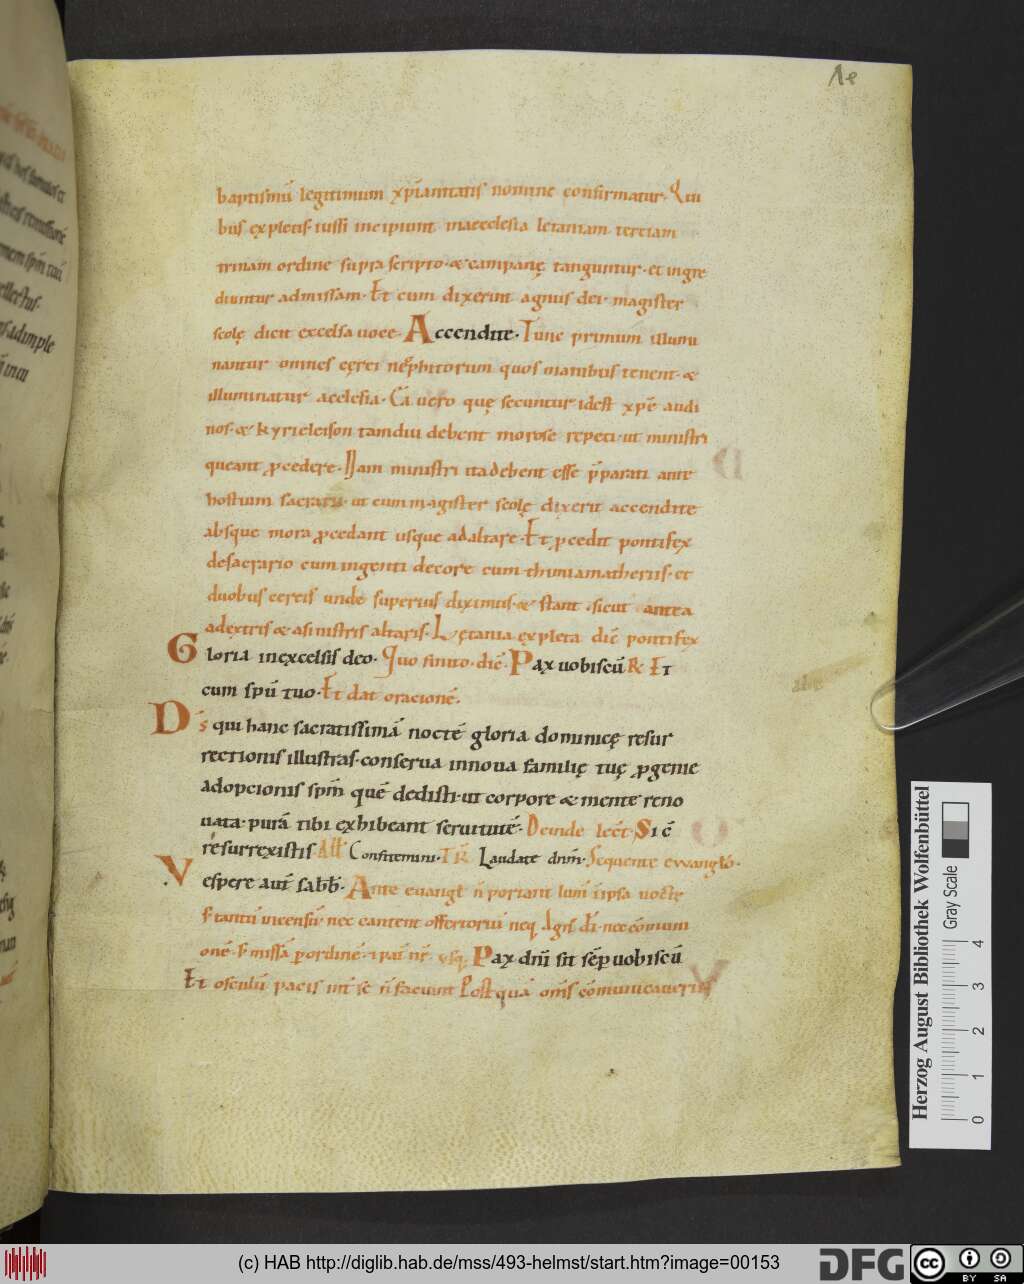 baptismū legitimum xp̄ianitatis nomine confirmatur. Qui
bus expletis. iussi incipiunt inaecclesia letaniam terciam
trinam ordine supra scripto. & campanę tanguntur. et ingre
diuntur admissam. Et cum dixerint agnus dei. magister
scolę dicit excelsa uoce. Accendite. Tunc primum illumi
nantur omnes cęrei neophitorum quos manibus tenent. &
illuminatur aeclesia. Cū uero quę secuntur idest xp̄e audi
nos. & kyrieleison tamdiu debent morose repeti. ut ministri
queant ꝓcedere. Nam ministri ita debent esse p̄parati ante
hostium sacrarii. ut cum magister scolę dixerit accendite
absque mora ꝓcedant usque ad altare. Et ꝓcedit pontifex
desacrario cum ingenti decore cum thimiamatheriis. et
duobus cereis unde superius diximus. & stant. sicut antea
adextris & asinistris altaris. Lętania expleta dic̄ pontifex
Gloria inexcelsis deo. Quo finito. dic̄. Pax uobiscū R Et
cum spū tuo. Et dat oracionē.
Ds̄ qui hanc sacratissimā noctē gloria dominicę resur
rectionis illustras. conserua innoua familię tuę ꝓgenie
adopcionis spm̄ quē dedisti. ut corpore & mente reno
uata. purā tibi exhibeant seruitutē. Deinde lect̄. Si c̄
resurrexistis. All Confitemini. TR Laudate dnm̄. Sequente ewangło.
Vespere aut̄ sabb̄. Ante euangł n̄ portant lum̄ īipsa nocte
s. tantū incensū. nec cantent offertoriū neq. Agn̄s dī. nec cōmuni
onē. s. missā ꝑordinē. usq. Pax dnī sit sēp uobiscū
Et osculū pacis int̄ se n̄ faciunt Postquā om̄s cōmunicauerint